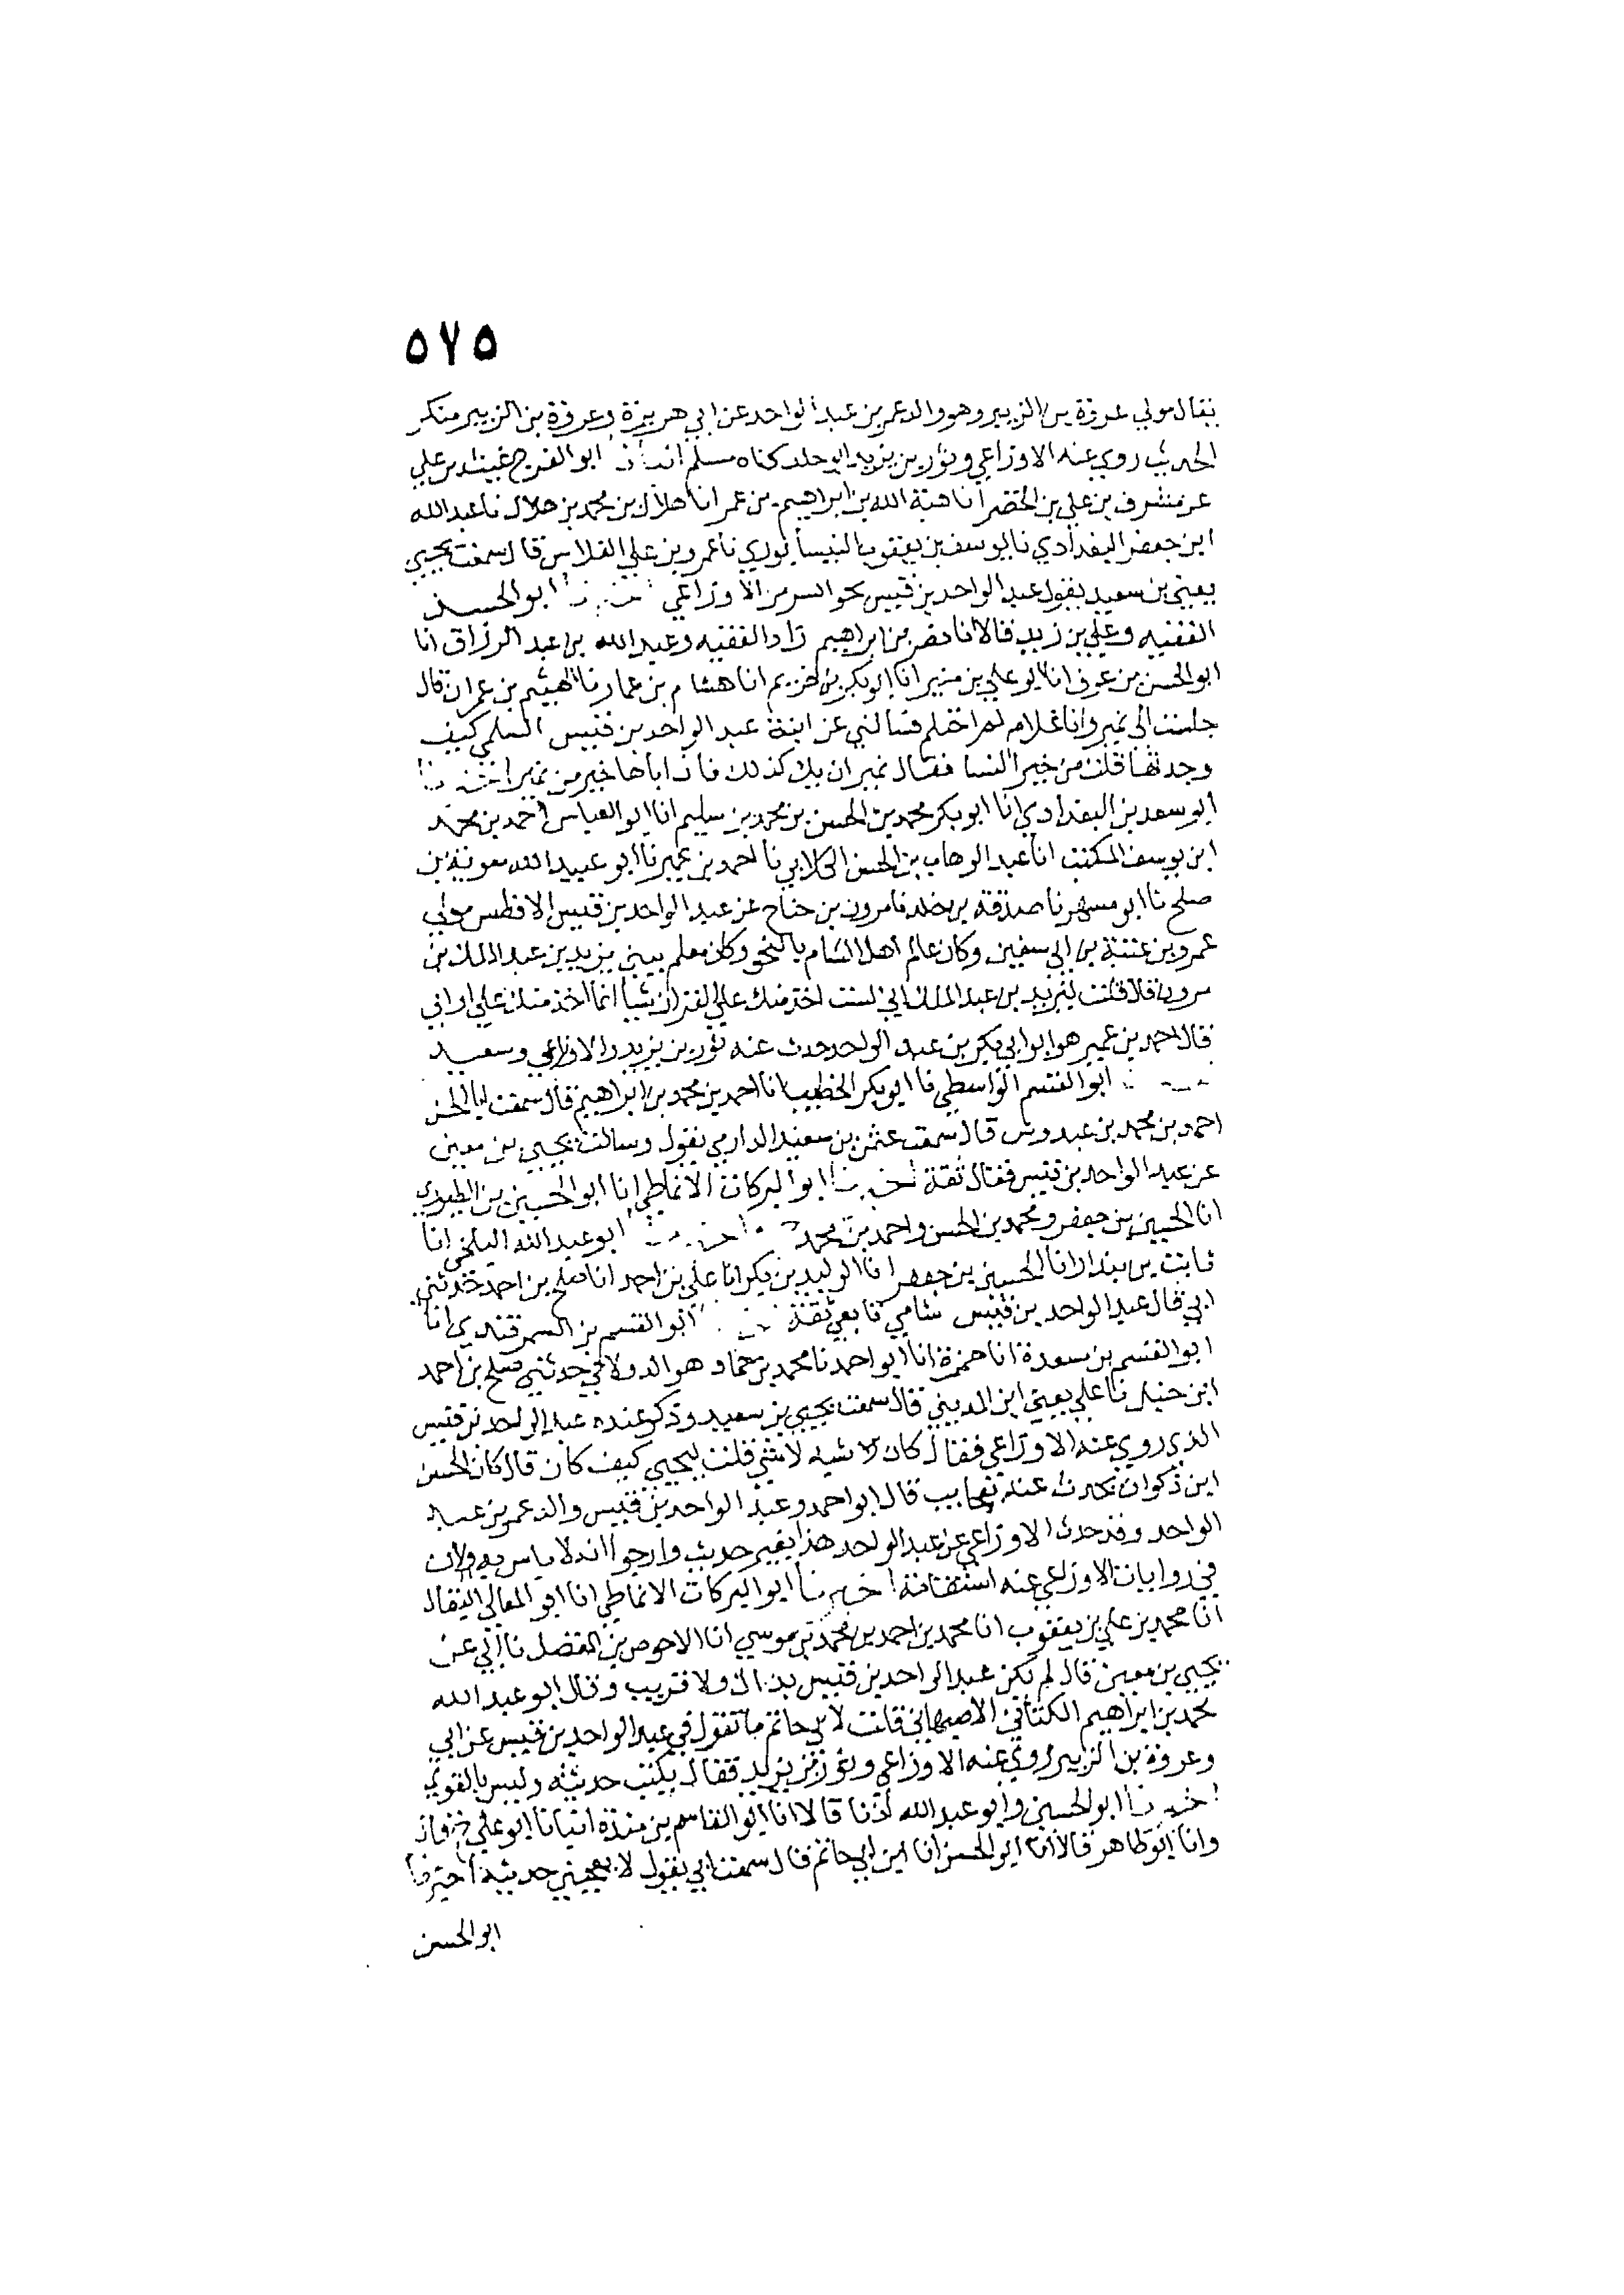 ٥٧٥
يقال مولي عروة بن الزبير وهو والد عمر بن عبد الواحد عن ابي هريرة وعروة بن الزبير منكر
الحديث روي عنه الاوزاعي وثور بن يزيد كناه مسلم ابو الفرج غيث بن علي
عن مشرف بن علي بن الخضر انا هبة الله بن ابراهيم بن عمر انا هلال بن محمد بن هلال نا عبد الله
ابن جعفر البغدادي نا يوسف بن يعقوب النيسابوري نا عمرو بن علي الفلاس قال سمعت يحيي
يعني بن سعيد يقول عبد الواحد بن قيس نحو السر من الاوزاعي ابو الحسن
الفقيه وعلي بن زيد قالا انا نصر بن ابراهيم زاد الفقيه وعبد الله بن عبد الرزاق انا
ابو الحسن بن عوف انا ابو علي بن منير انا ابو بكر بن خريم انا هشام بن عمار نا الهيثم بن عمران قال
جلست الى نمير وانا غلام لم احتلم فسالني عن ابنة عبد الواحد بن قيس السلمي كيف
وجدتها قلت من خير النسا فقال نمير ان يك كذلك فان اباها خير من نمير
ابو سعد بن البغدادي انا ابو بكر محمد بن الحسن بن محمد بن سليم انا ابو العباس احمد بن محمد
ابن يوسف المكتب انا عبد الوهاب بن الحسن الكلابي نا احمد بن عمير نا ابو عبيد الله معوية بن
صلح نا ابو مسهر نا صدقة بن خلد نا مرون بن جناح عن عبد الواحد بن قيس الافطس مولي
عمرو بن عتبة بن ابي سفين وكان عالم اهل الشام بالنحو وكان معلم بني يزيد بن عبد الملك بن
مرون قال قلت ليزيد بن عبد الملك اني لست اخذ منك علي القران شيا انما اخذ منك علي ادبي
قال احمد بن عمير هو ابو ابي بكر بن عبد الواحد حدث عنه ثور بن يزيد والاوزاعي وسعيد
ابو القسم الواسطي نا ابو بكر الخطيب انا احمد بن محمد بن ابراهيم قال سمعت ابا الحسن
احمد بن محمد بن عبدوس قال سمعت عثمن بن سعيد الدارمي يقول وسالت يحيي بن معين
عن عبد الواحد بن قيس فقال ثقة اخبرنا ابو البركات الانماطي انا ابو الحسين بن الطيوري
انا الحسين بن جعفر ومحمد بن الحسن واحمد بن محمد ابو عبد الله البلخي انا
ثابت بن بندار انا الحسين بن جعفر انا الوليد بن بكر انا علي بن احمد انا صلح بن احمد حدثني
ابي قال عبد الواحد بن قيس شامي تابعي ثقة ابو القسم بن السمرقندي انا
ابو القسم بن مسعدة انا حمزة انا ابو احمد نا محمد بن حماد وهو الدولابي حدثني صلح بن احمد
ابن حنبل نا علي يعني ابن المديني قال سمعت يحيي بن سعيد وذكر عنده عبد الواحد بن قيس
الذي روي عنه الاوزاعي فقال كان شبه لا شي قلت ليحيي كيف كان قال كان الحسن
ابن ذكوان يحدث عنه بعجايب قال ابو احمد وعبد الواحد بن قيس والد عمر بن عبد
الواحد وقد حدث الاوزاعي عن عبد الواحد هذا بغير حديث وارجوا انه لا باس به ولان
في روايات الاوزاعي عنه استقامة اخبرنا ابو البركات الانماطي انا ابو المعالي البقال
انا محمد بن علي بن يعقوب انا محمد بن احمد بن محمد بن موسي انا الاحوص بن المفضل نا ابي عن
يحيي بن معين قال لم يكن عبد الواحد بن قيس بذاك ولا قريب وقال ابو عبد الله
محمد بن ابراهيم الكتاني الاصبهاني قلت لابي حاتم ما تقول في عبد الواحد بن قيس عن ابي
وعروة بن الزبير روي عنه الاوزاعي وثور بن يزيد فقال يكتب حديثه وليس بالقوي
اخبرنا ابو الحسين وابو عبد الله اذنا قالا انا ابو القاسم بن مندة انبانا ابو علي قال
وانا ابو طاهر قالا انا ابو الحسن انا ابن ابي حاتم قال سمعت ابي يقول لا يعجبني حديثه اخبرنا
ابو الحسن